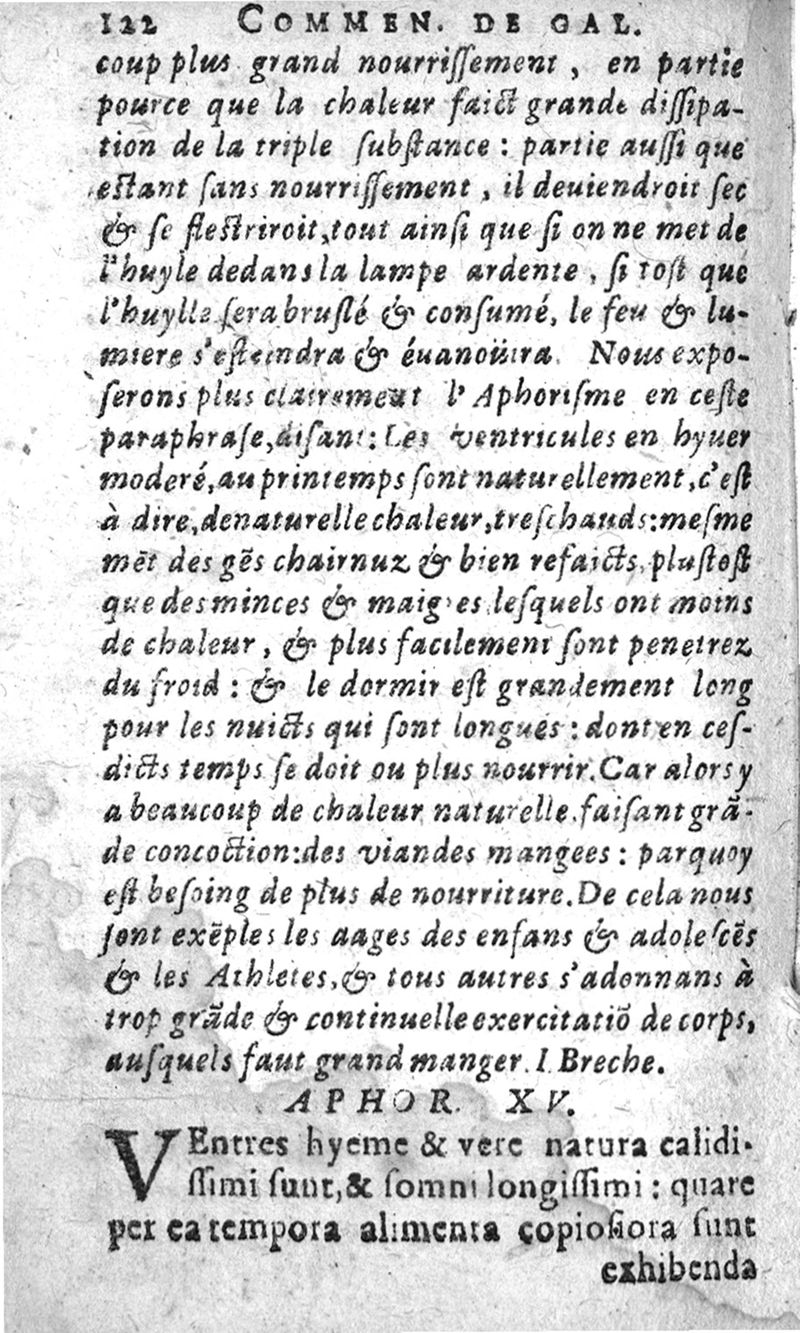 122 COMMEN. DE GAL.
coup plus grand nourriſſement, en partie
pource que la chaleur faict grande diſſipa-
tion de la triple ſubſtance : partie auſſi que
eſtant ſans nourriſſement, il deuiendroit ſec
& ſe fleſtriroit, tout ainſi que ſi on ne met de
l'huyle dedans la lampe ardente, ſi toſt que
l'huylle ſera bruſlé & conſumé, le feu & lu-
miere s'eſteindra & éuanoüira. Nous expo-
ſerons plus clairement l'Aphoriſme en ceſte
paraphraſe, diſant: Les ventricules en hyuer
moderé, au printemps ſont naturellement, c'eſt
à dire, de naturelle chaleur, treſchauds: meſme
mēt des gēs chairnuz & bien refaicts, pluſtoſt
que des minces & maigres, leſquels ont moins
de chaleur, & plus facilement ſont penetrez
du froid : & le dormir eſt grandement long
pour les nuicts qui ſont longues : dont en ceſ-
dicts temps ſe doit ou plus nourrir. Car alors y
a beaucoup de chaleur naturelle, faiſant grā-
de concoction: des viandes mangees : parquoy
eſt beſoing de plus de nourriture. De cela nous
ſont exēples les aages des enfans & adoleſcēs
& les Athletes, & tous autres s'adonnans à
trop grāde & continuelle exercitatiō de corps,
auſquels faut grand manger. I. Breche.
APHOR. XV.
VEntres hyeme & vere natura calidi-
ſſimi ſunt, & ſomni longiſſimi : quare
per ea tempora alimenta copioſiora ſunt
exhibenda